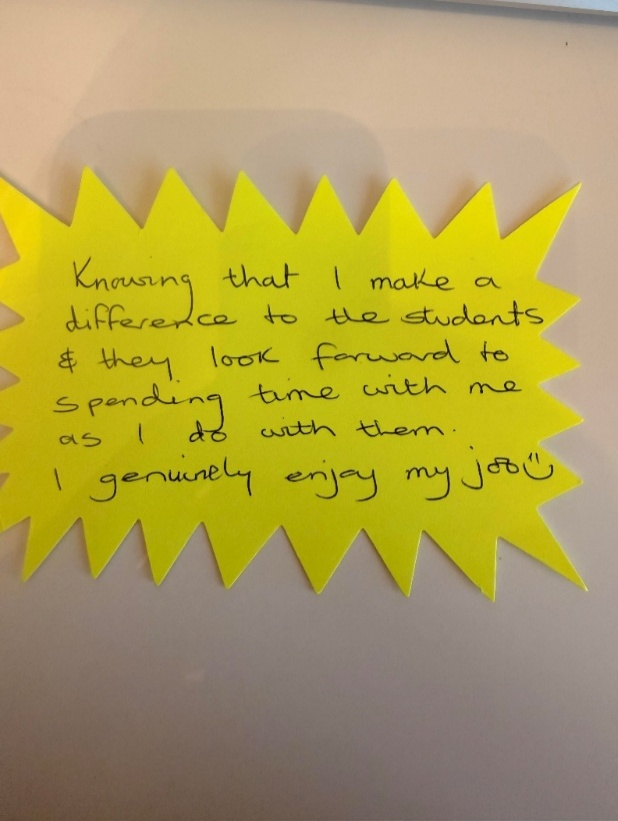 Knowing that I make a
difference to the students
& they look forward to
spending time with me
as I do with them.
I genuinely enjoy my job ☺